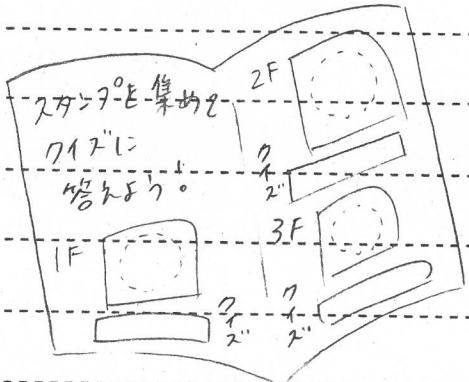 スタンプを集めて
クイズに
答えよう！
1F
クイズ
2F
クイズ
3F
クイズ